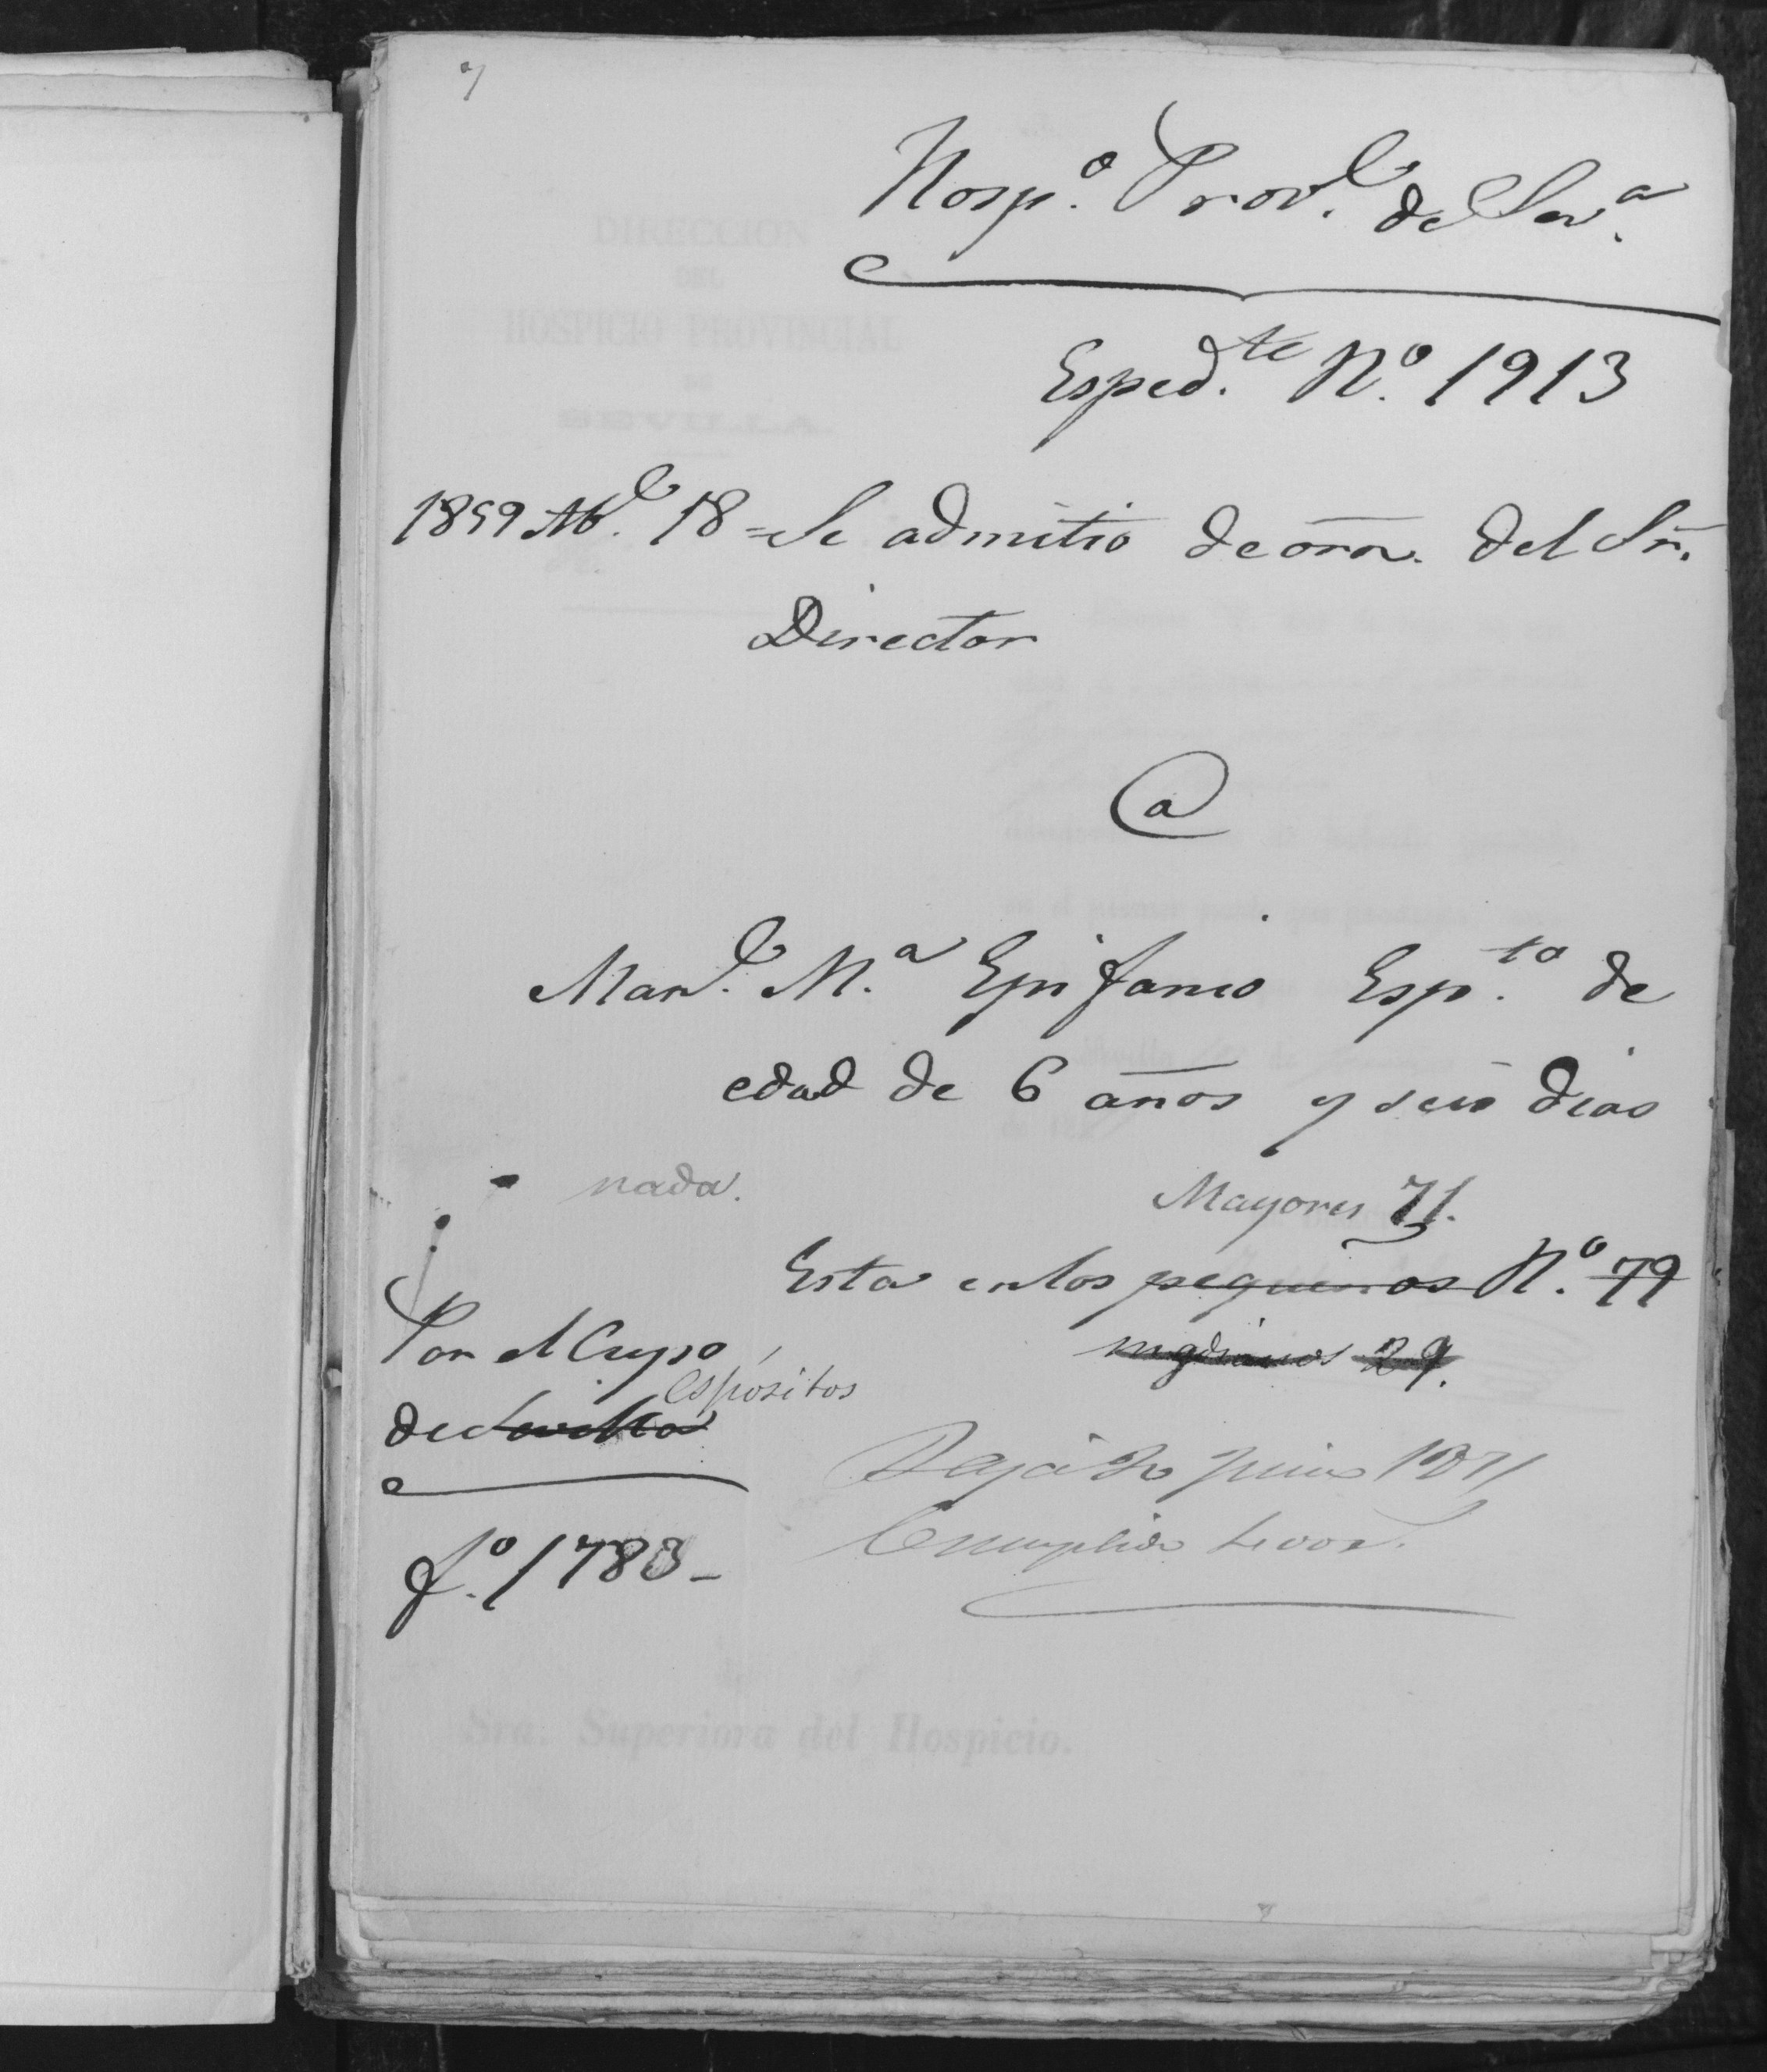 Hosp.º Prov.l de Sev.a
Esped.te N.º 1913
1859 Ab.l 18 = Se admitio de orn. del Sr.
Director
a
Man.l M.a Epifanio Esp.to de
edad de 6 años y seis dias
nada.
Mayores 71.
Esta en los pequeños N.º 79
Por el Cupo,
medianos 29.
espositos
de Sevilla
Baja en Junio 1871
Cumplido
f.º 1783-
DIRECCION
DEL
HOSPICIO PROVINCIAL
DE
SEVILLA
Sra. Superiora del Hospicio.